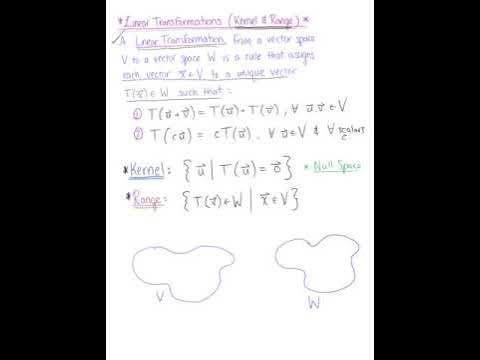 *Linear Transformations (Kernel & Range)*
A Linear Transformation from a vector space
V to a vector space W is a rule that assigns
each vector x⃗ ∈ V to a unique vector
T(x⃗) ∈ W such that:
① T(u⃗ + v⃗) = T(u⃗) + T(v⃗), ∀ u⃗,v⃗ ∈ V
② T(cu⃗) = cT(u⃗), ∀ u⃗ ∈ V & ∀ scalars c
*Kernel: {u⃗ | T(u⃗) = 0⃗} *Null Space
*Range: {T(x⃗) ∈ W | x⃗ ∈ V}
V W